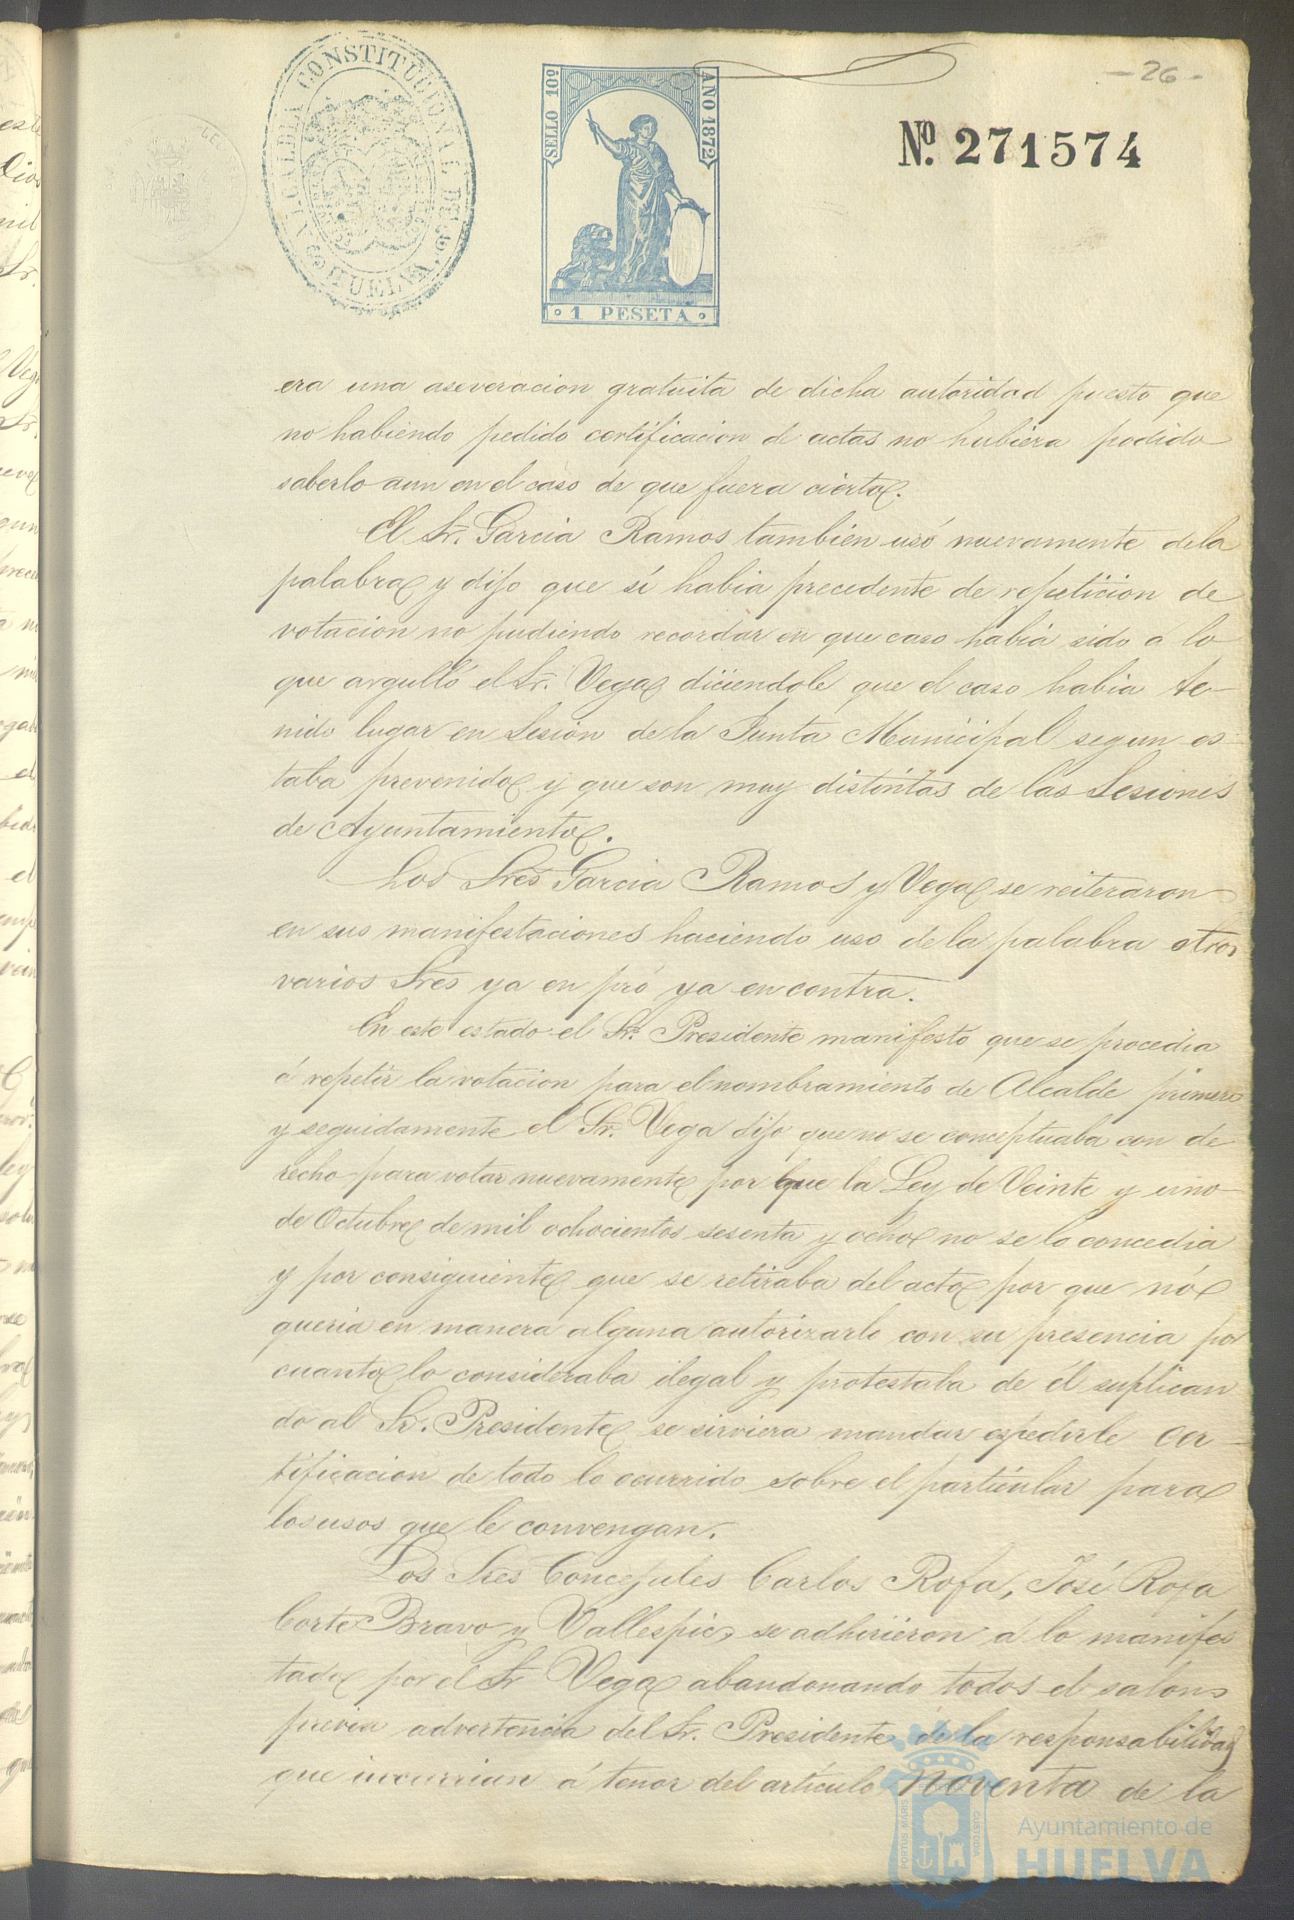 - 26 -
ALCALDIA CONSTITUCIONAL DE HUELVA
SELLO 10º
AÑO 1872
1 PESETA
Nº. 271574
era una aseveracion gratuita de dicha autoridad puesto que
no habiendo pedido certificacion de actas no hubiera podido
saberlo aun en el caso de que fuera cierta.
El Sr. Garcia Ramos tambien usó nuevamente dela
palabra y dijo que sí habia precedente de repeticion de
votacion no pudiendo recordar en que caso habia sido a lo
que argulló el Sr. Vega diciendole que el caso habia te-
nido lugar en Sesion de la Junta Municipal segun es-
taba prevenido y que son muy distintas de las Sesiones
de Ayuntamiento.
Los Sres Garcia Ramos y Vega se reiteraron
en sus manifestaciones haciendo uso de la palabra otros
varios Sres ya en pró ya en contra.
En este estado el Sr. Presidente manifestó que se procedia
á repetir la votacion para el nombramiento de Alcalde primero
y seguidamente el Sr. Vega dijo que no se conceptuaba con de
recho para votar nuevamente por que la Ley de Veinte y uno
de Octubre de mil ochocientos sesenta y ocho no se lo concedia
y por consiguiente que se retiraba del acto por que nó
queria en manera alguna autorizarlo con su presencia por
cuanto lo consideraba ilegal y protestaba de él suplican
do al Sr. Presidente se sirviera mandar espedirle cer-
tificacion de todo lo ocurrido sobre el particular para
los usos que le convengan.
Los Sres Concejales Carlos Rofa, José Rofa
Corte Bravo y Vallespic, se adhirieron a lo manifes
tado por el Sr Vega abandonando todos el salon
previa advertencia del Sr. Presidente de la responsabilidad
que incurrian á tenor del artículo noventa de la
PORTUS MARIS
CUSTODIA
Ayuntamiento de
HUELVA